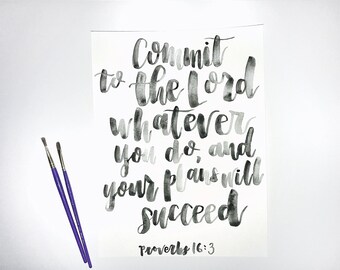 Commit
to the Lord
whatever
you do, and
your plans will
succeed
Proverbs 16:3